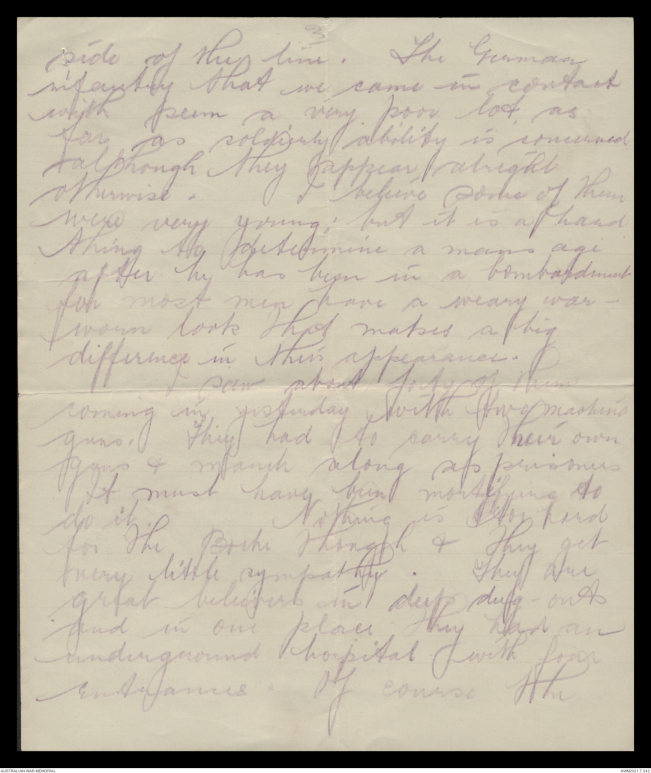 3
side of the line. The German
infantry that we came in contact
with seem a very poor lot as
far as soldierly ability is concerned
although they appear alright
otherwise. I believe some of them
were very young; but it is a hard
thing to determine a mans age
after he has been in a bombardment
for most men have a weary war-
worn look that makes a big
difference in their appearance.
I saw about forty of them
coming in yesterday with two machine
guns. They had to carry their own
guns & march along as prisoners
It must have been mortifying to
do it. Nothing is too hard
for the Boche though & they get
very little sympathy. They are
great believers in deep dug-outs
and in one place they had an
underground hospital with four
entrances. Of course the
AUSTRALIAN WAR MEMORIAL